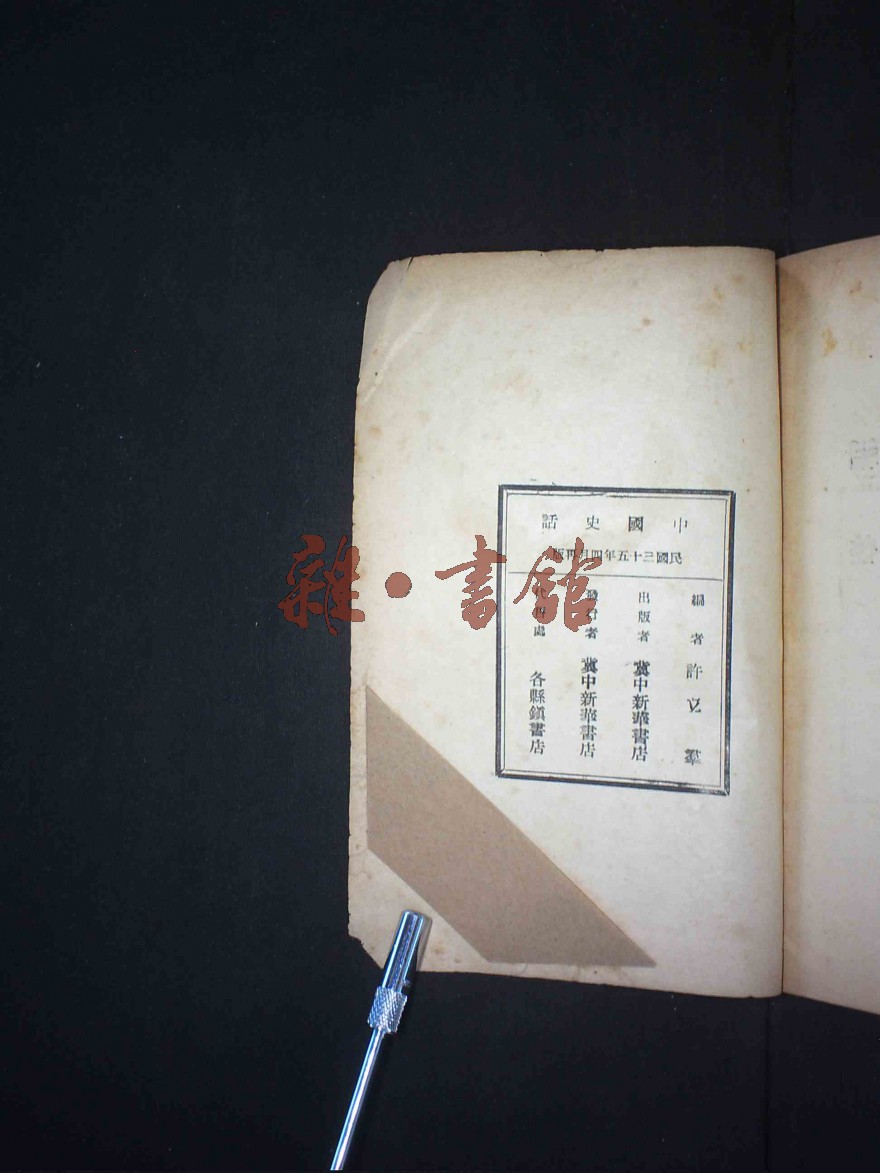 中國史話
民國三十五年四月再版
編者 許立羣
出版者 冀中新華書店
發行者 冀中新華書店
處 各縣鎮書店
雜·書館